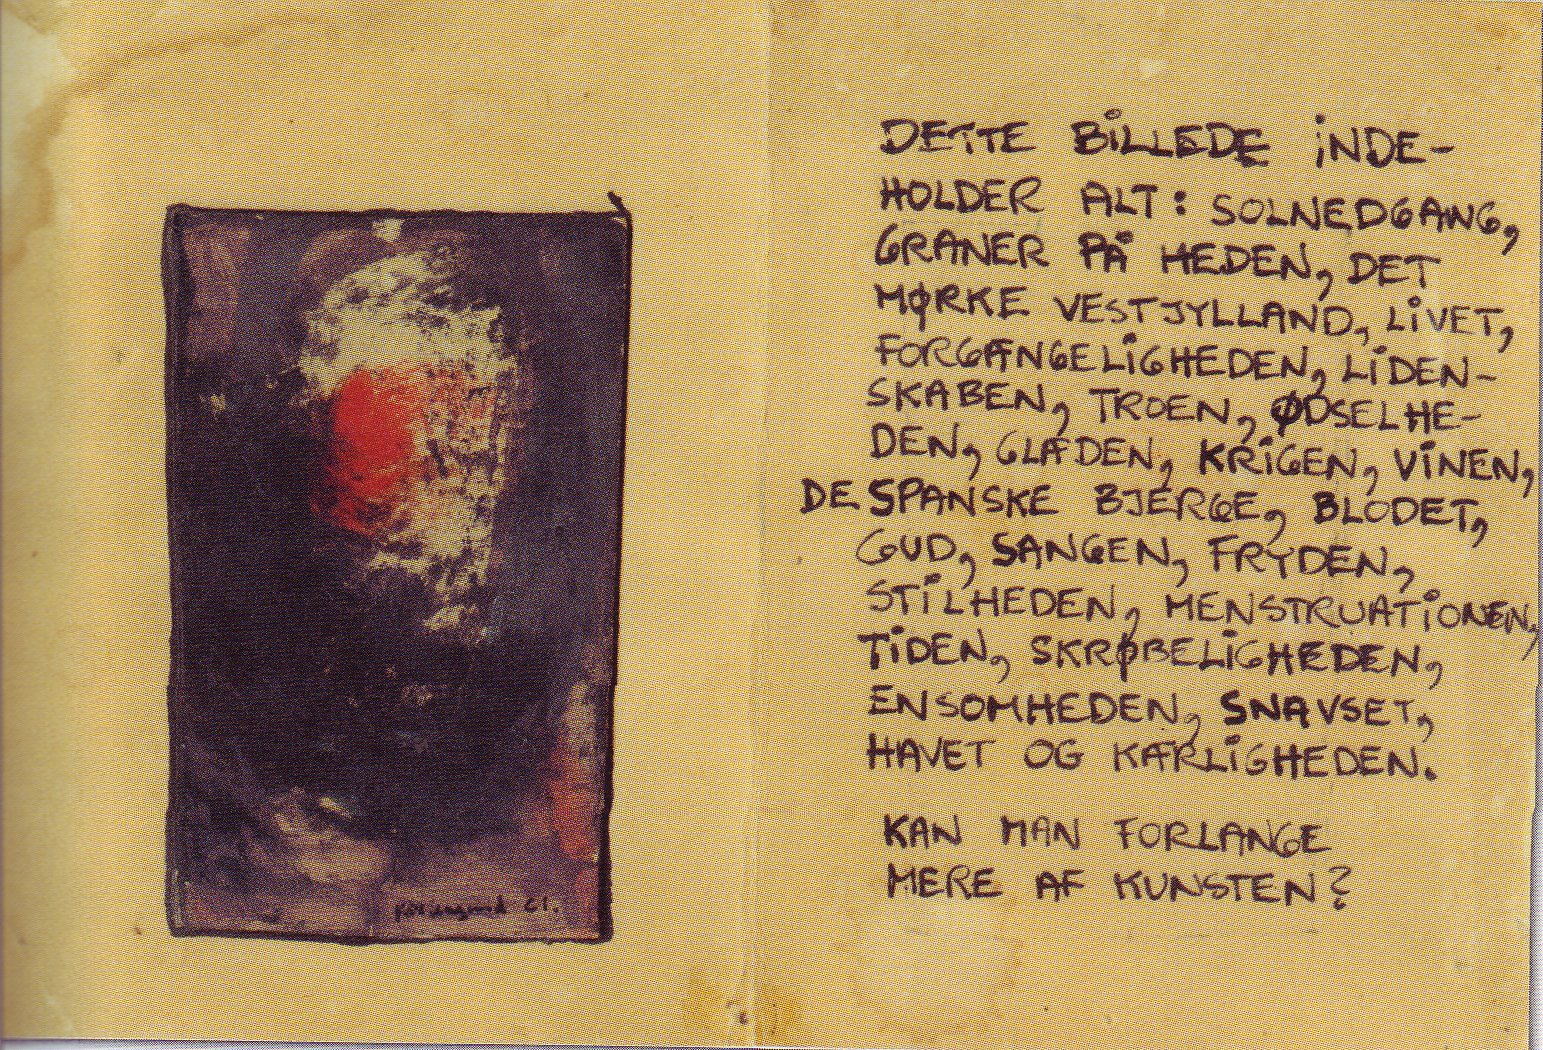 DETTE BILLEDE INDE-
HOLDER ALT: SOLNEDGANG,
GRANER PÅ HEDEN, DET
MØRKE VESTJYLLAND, LIVET,
FORGÆNGELIGHEDEN, LIDEN-
SKABEN, TROEN, ØDSELHE-
DEN, GLÆDEN, KRIGEN, VINEN,
DE SPANSKE BJERGE, BLODET,
GUD, SANGEN, FRYDEN,
STILHEDEN, MENSTRUATIONEN,
TIDEN, SKRØBELIGHEDEN,
ENSOMHEDEN, SNAVSET,
HAVET OG KÆRLIGHEDEN.
KAN MAN FORLANGE
MERE AF KUNSTEN?
61.